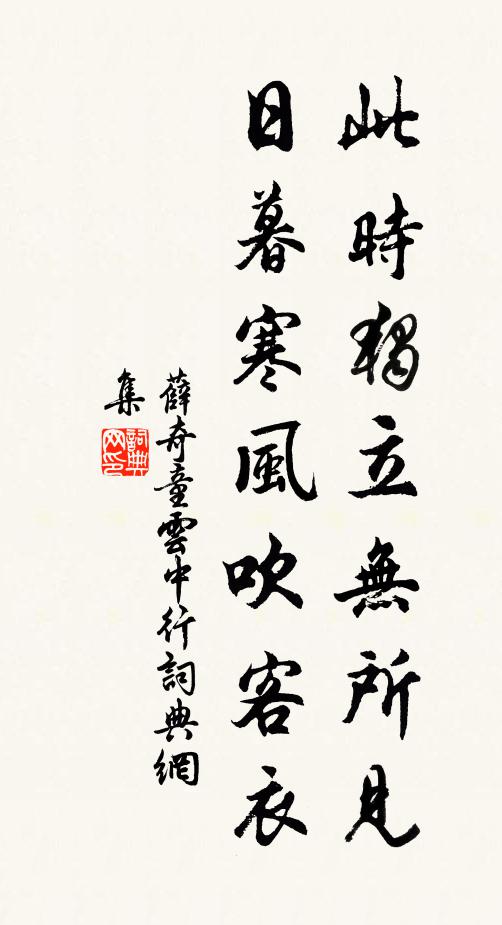 此時獨立無所見
日暮寒風吹客衣
薛奇童雲中行詞典網
集
詞典
网印